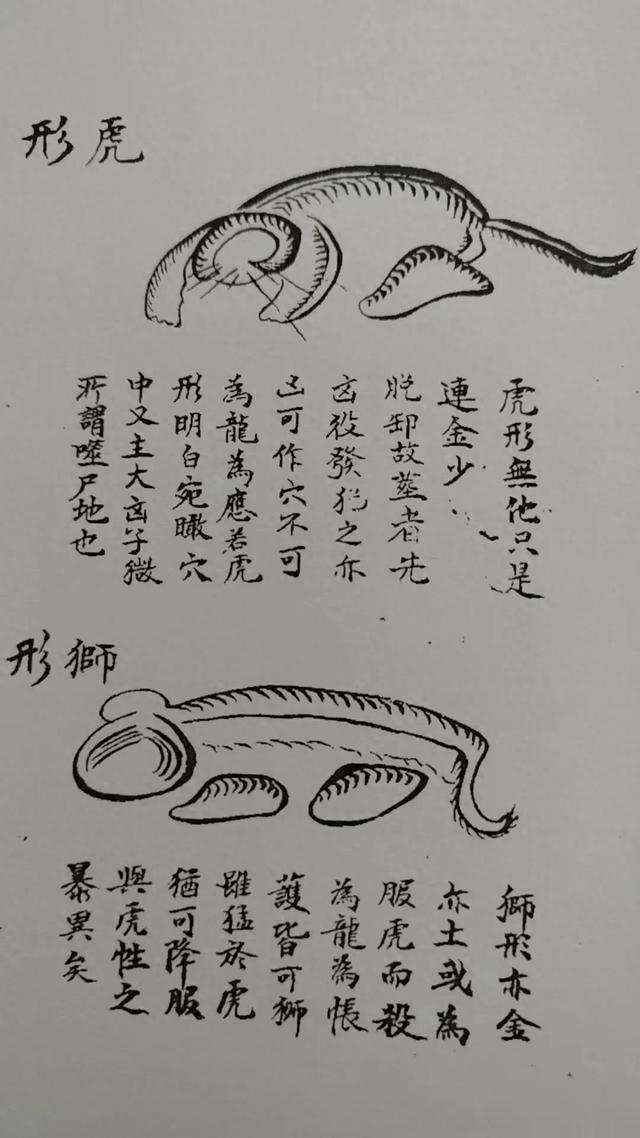 虎形
虎形無他只是
連金少
脫卸故葬者先
凶後發犯之亦
凶可作穴不可
為龍為應若虎
形明白宛瞰穴
中又主大凶
所謂噬尸地也
獅形
獅形亦金
亦土或為
服虎而殺
為龍為帳
護皆可獅
雖猛於虎
猶可降服
與虎性之
暴異矣